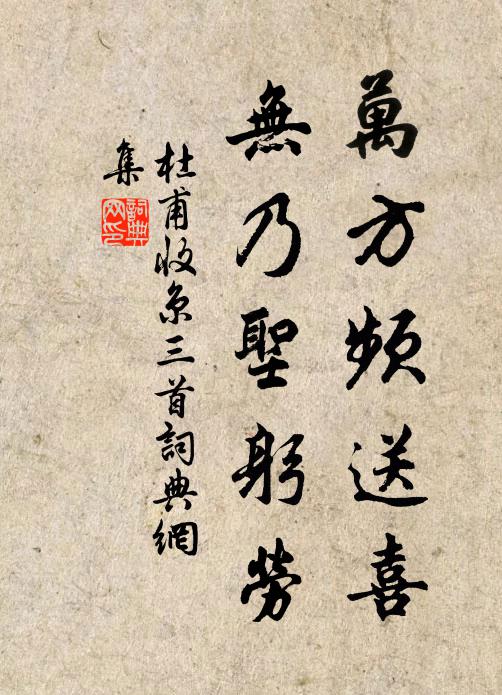 萬方頻送喜
無乃聖躬勞
杜甫收京三首詞典網
集
詞典
网印